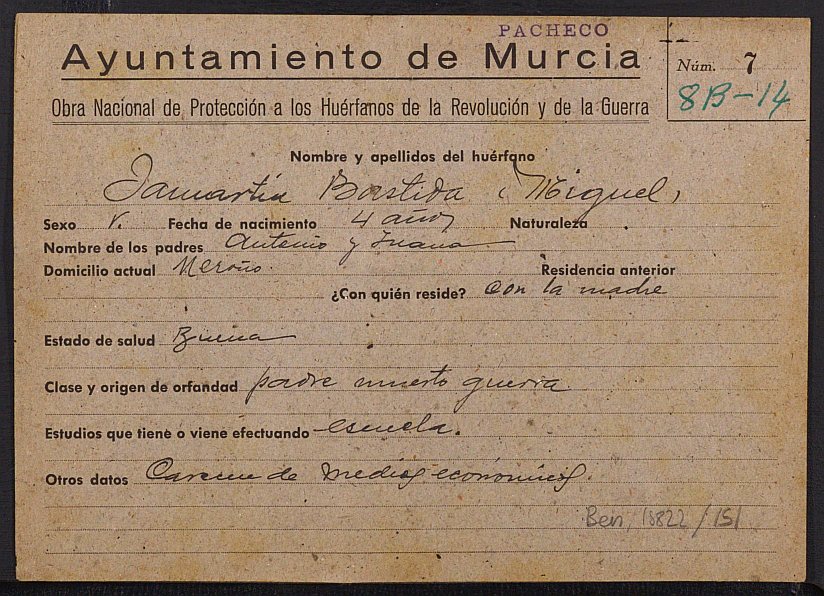 PACHECO
Ayuntamiento de Murcia
Núm. 7
8B-14
Obra Nacional de Protección a los Huérfanos de la Revolución y de la Guerra
Nombre y apellidos del huérfano
Bastida (Miguel)
Sexo V. Fecha de nacimiento 4 años Naturaleza
Nombre de los padres Antonio y Juana
Domicilio actual Meroño. Residencia anterior
¿Con quién reside? con la madre
Estado de salud Buena
Clase y origen de orfandad padre muerto guerra.
Estudios que tiene o viene efectuando escuela.
Otros datos Carecen de medios económicos.
Ben, 10822/151